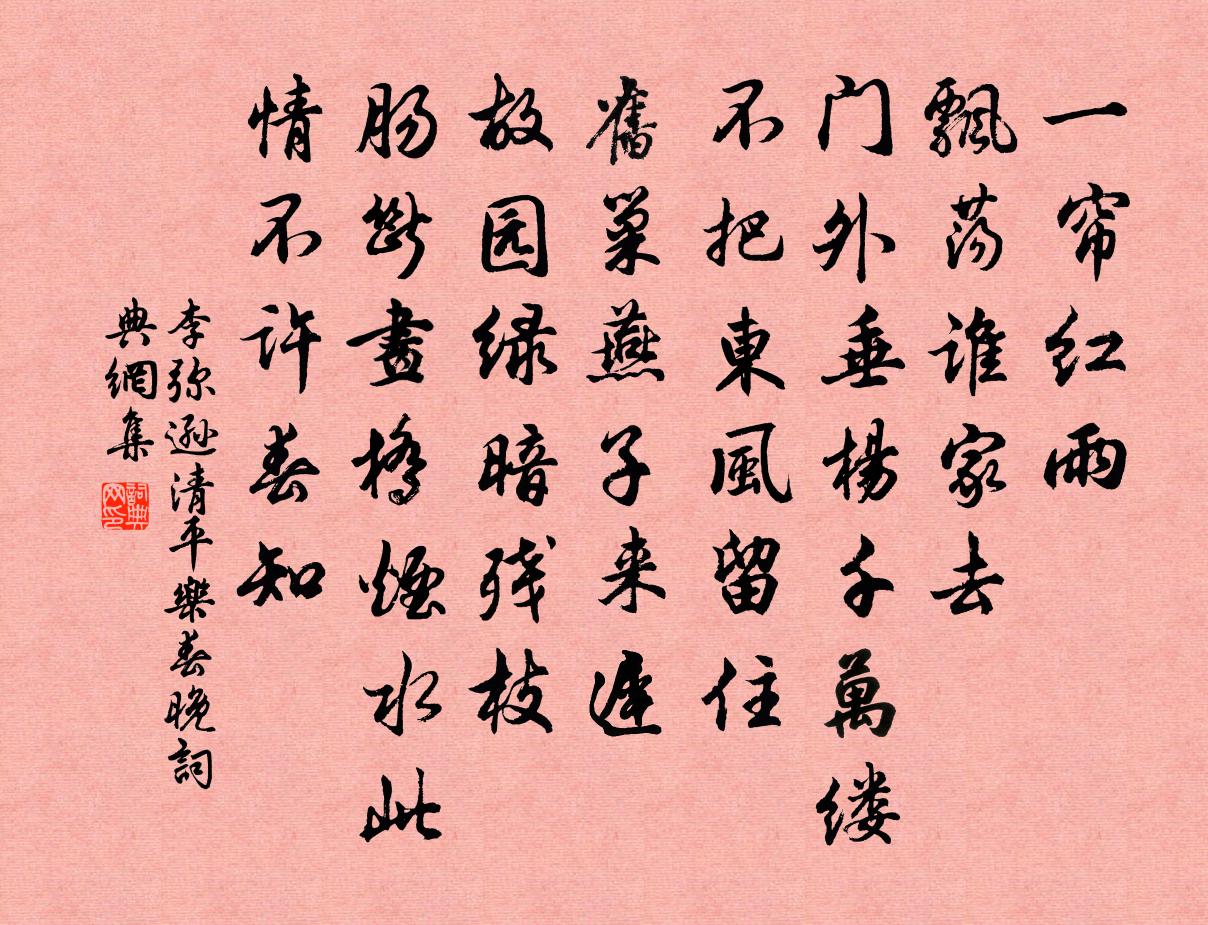 一帘红雨
飘荡谁家去
门外垂杨千萬缕
不把東風留住
舊巢燕子来遲
故园绿暗残枝
肠断畫橋煙水此
情不许春知
李弥遜清平樂春晚詞
典網集
詞典
网印